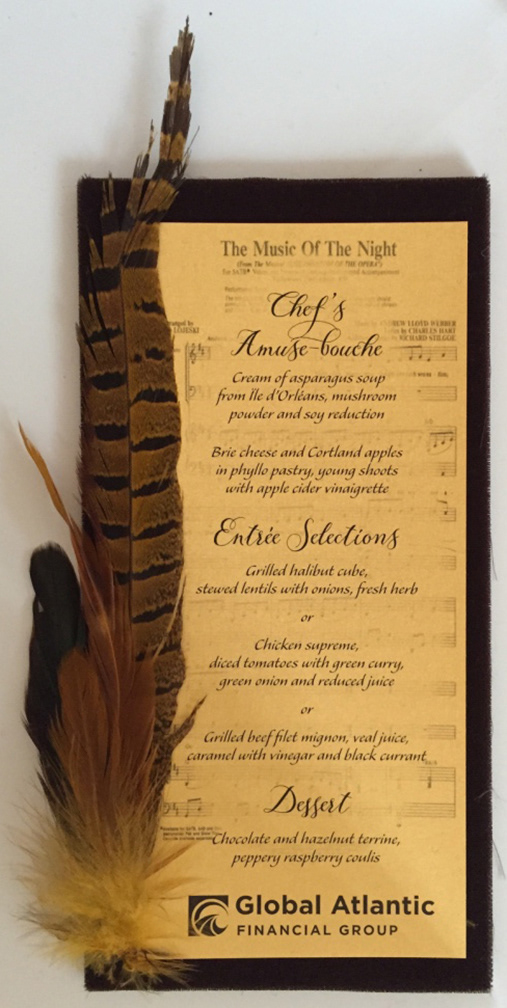 The Music Of The Night
(From The OF THE OPERA")
For SATB*
Chef's
Amuse-bouche
LLOYD-WEBBER
by CHARLES HART
RICHARD STILGOE
Cream of asparagus soup
from Île d'Orléans, mushroom
powder and soy reduction
Brie cheese and Cortland apples
in phyllo pastry, young shoots
with apple cider vinaigrette
Entrée Selections
Grilled halibut cube,
stewed lentils with onions, fresh herb
or
Chicken supreme,
diced tomatoes with green curry,
green onion and reduced juice
or
Grilled beef filet mignon, veal juice,
caramel with vinegar and black currant
Dessert
Chocolate and hazelnut terrine,
peppery raspberry coulis
Global Atlantic
FINANCIAL GROUP